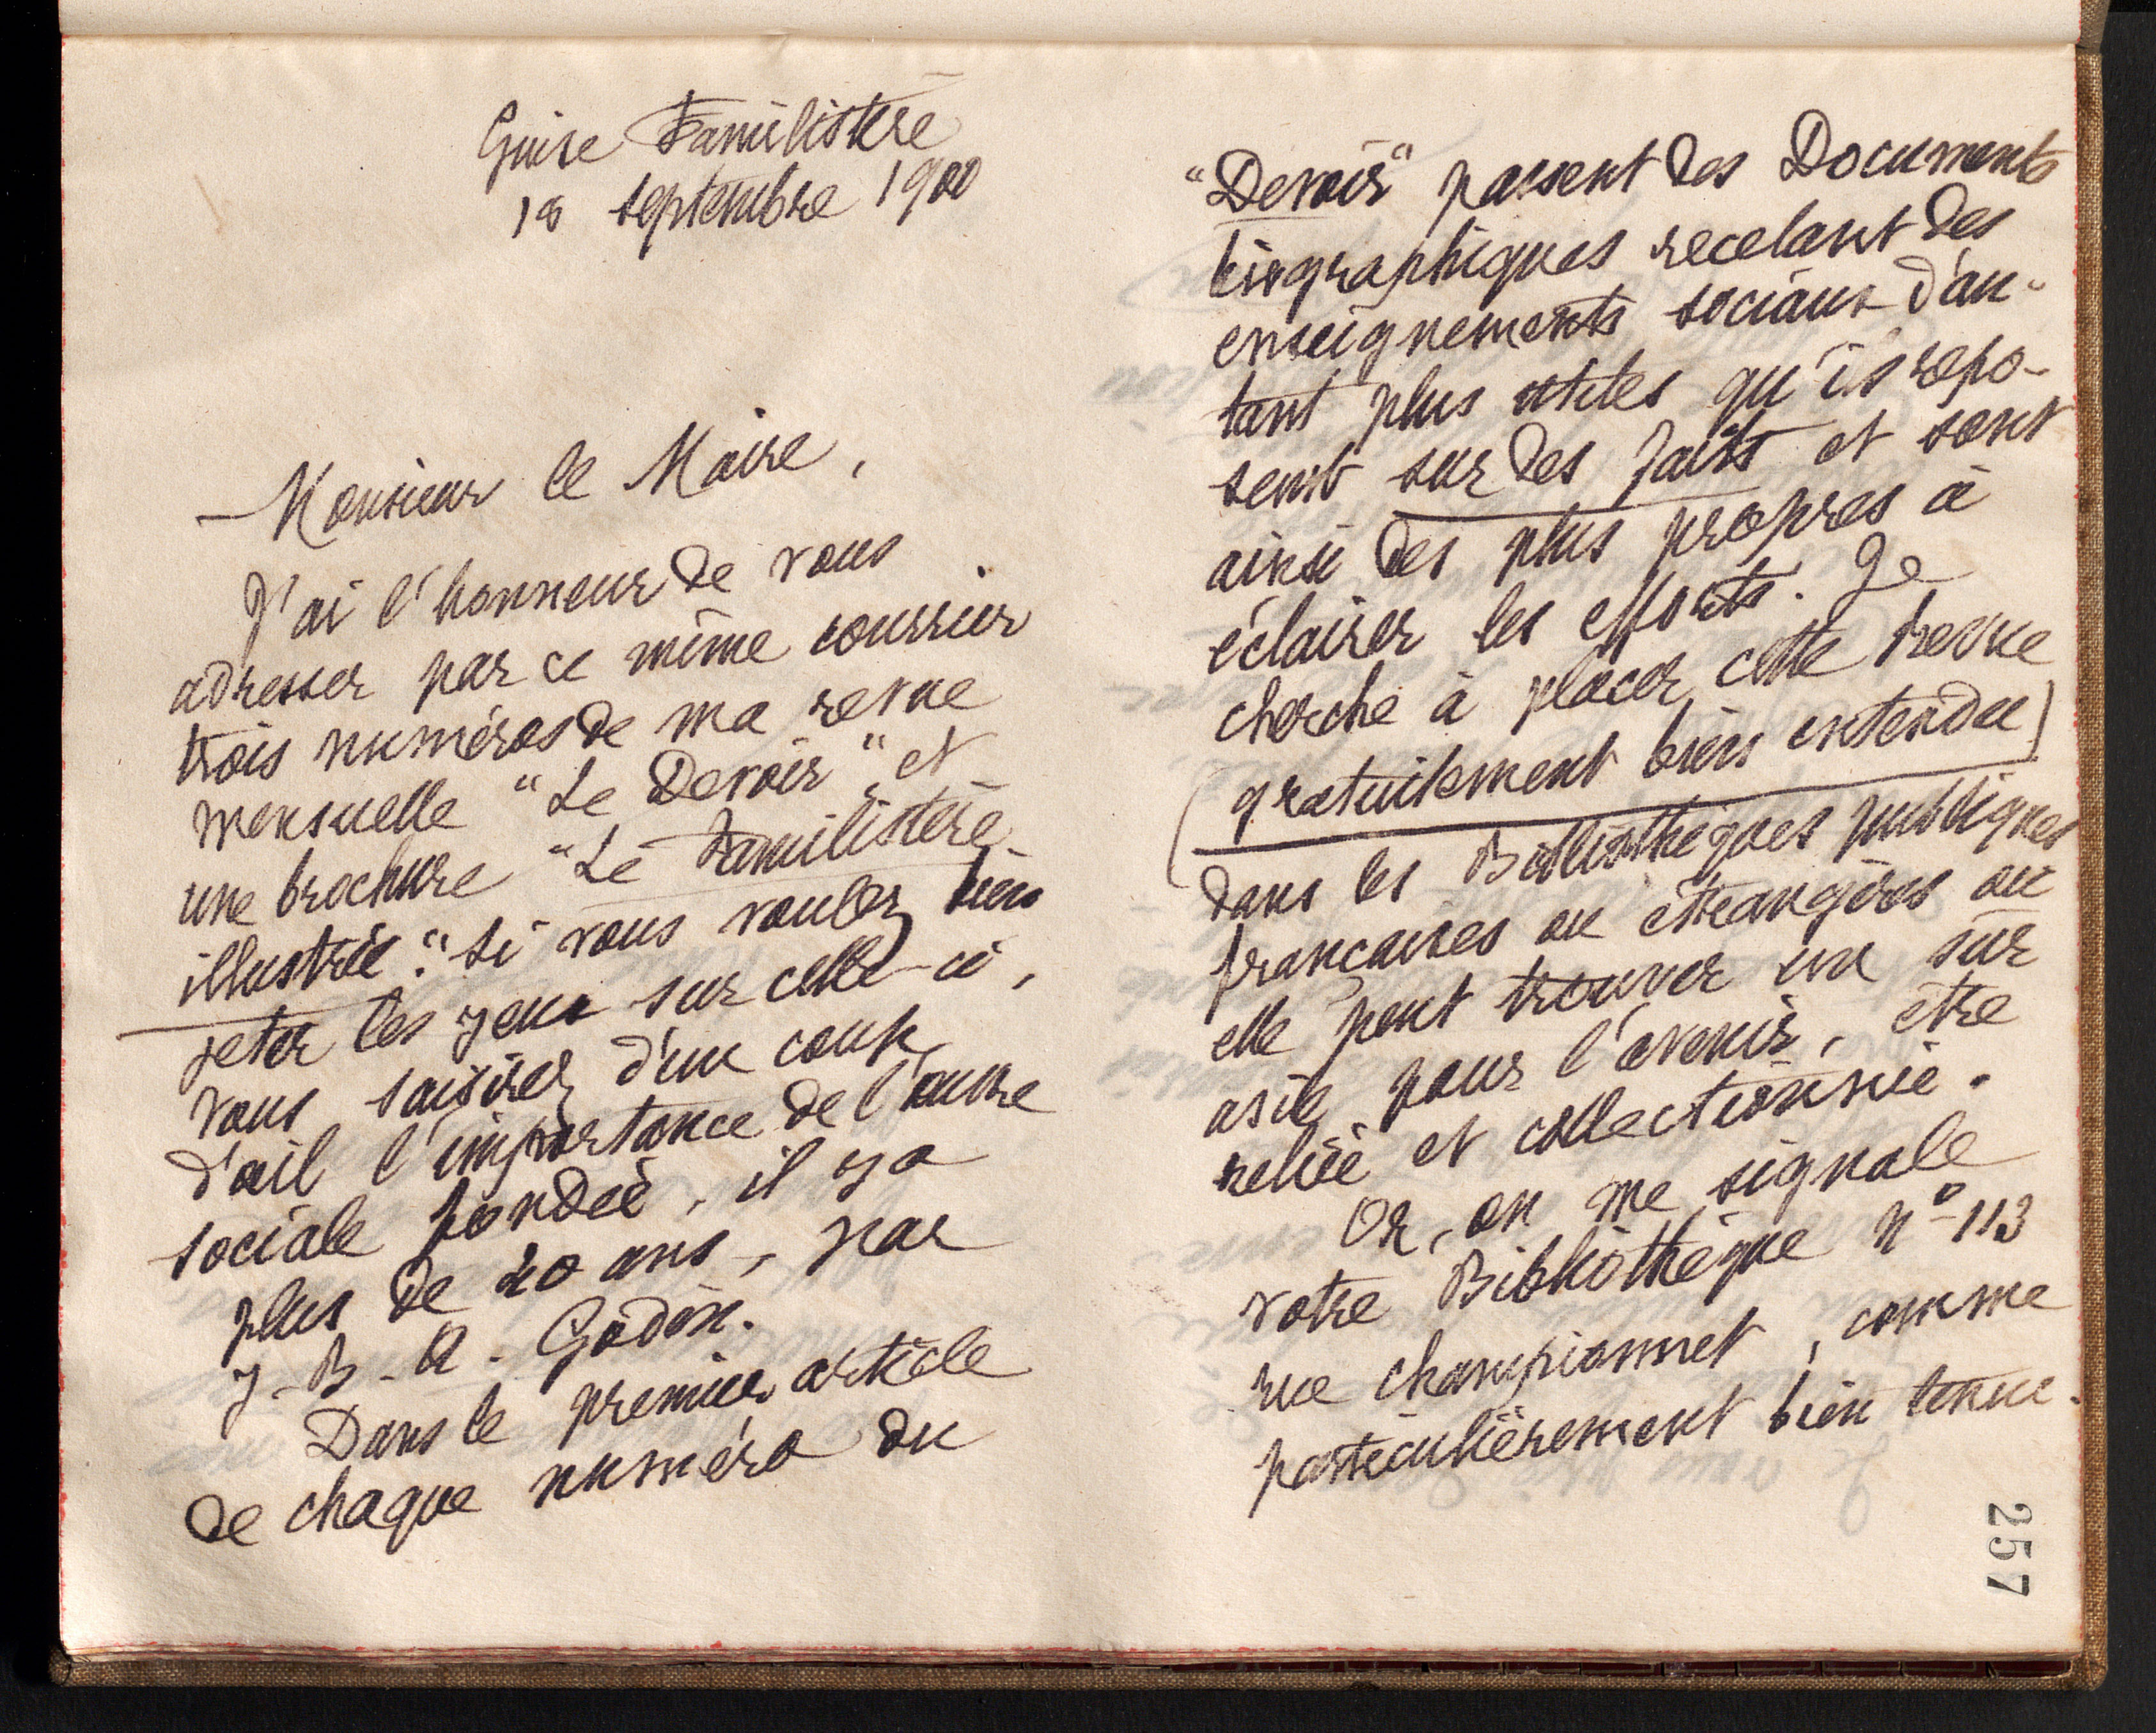 Guise Familistère
18 septembre 1900
Monsieur le Maire,
J'ai l'honneur de vous
adresser par ce même courrier
trois numéros de ma revue
mensuelle "Le Devoir" et
une brochure "Le Familistère
illustré". Si vous voulez bien
jeter les yeux sur celle-ci,
vous saisirez d'un coup
d'œil l'importance de l'œuvre
sociale fondée, il y a
plus de 20 ans, par
J-B-A. Godin.
Dans le premier article
de chaque numéro du
"Devoir" passent des Documents
biographiques recelant des
enseignements sociaux d'au-
tant plus utiles qu'ils repo-
sent sur des faits et sont
ainsi des plus propres à
éclairer les efforts. Je
cherche à placer cette Revue
(gratuitement bien entendu)
dans les Bibliothèques publiques
françaises ou étrangères où
elle peut trouver un sûr
asile pour l'avenir, être
reliée et collectionnée.
Or, on me signale
votre Bibliothèque n° 113
rue championnet, comme
particulièrement bien tenue.
257